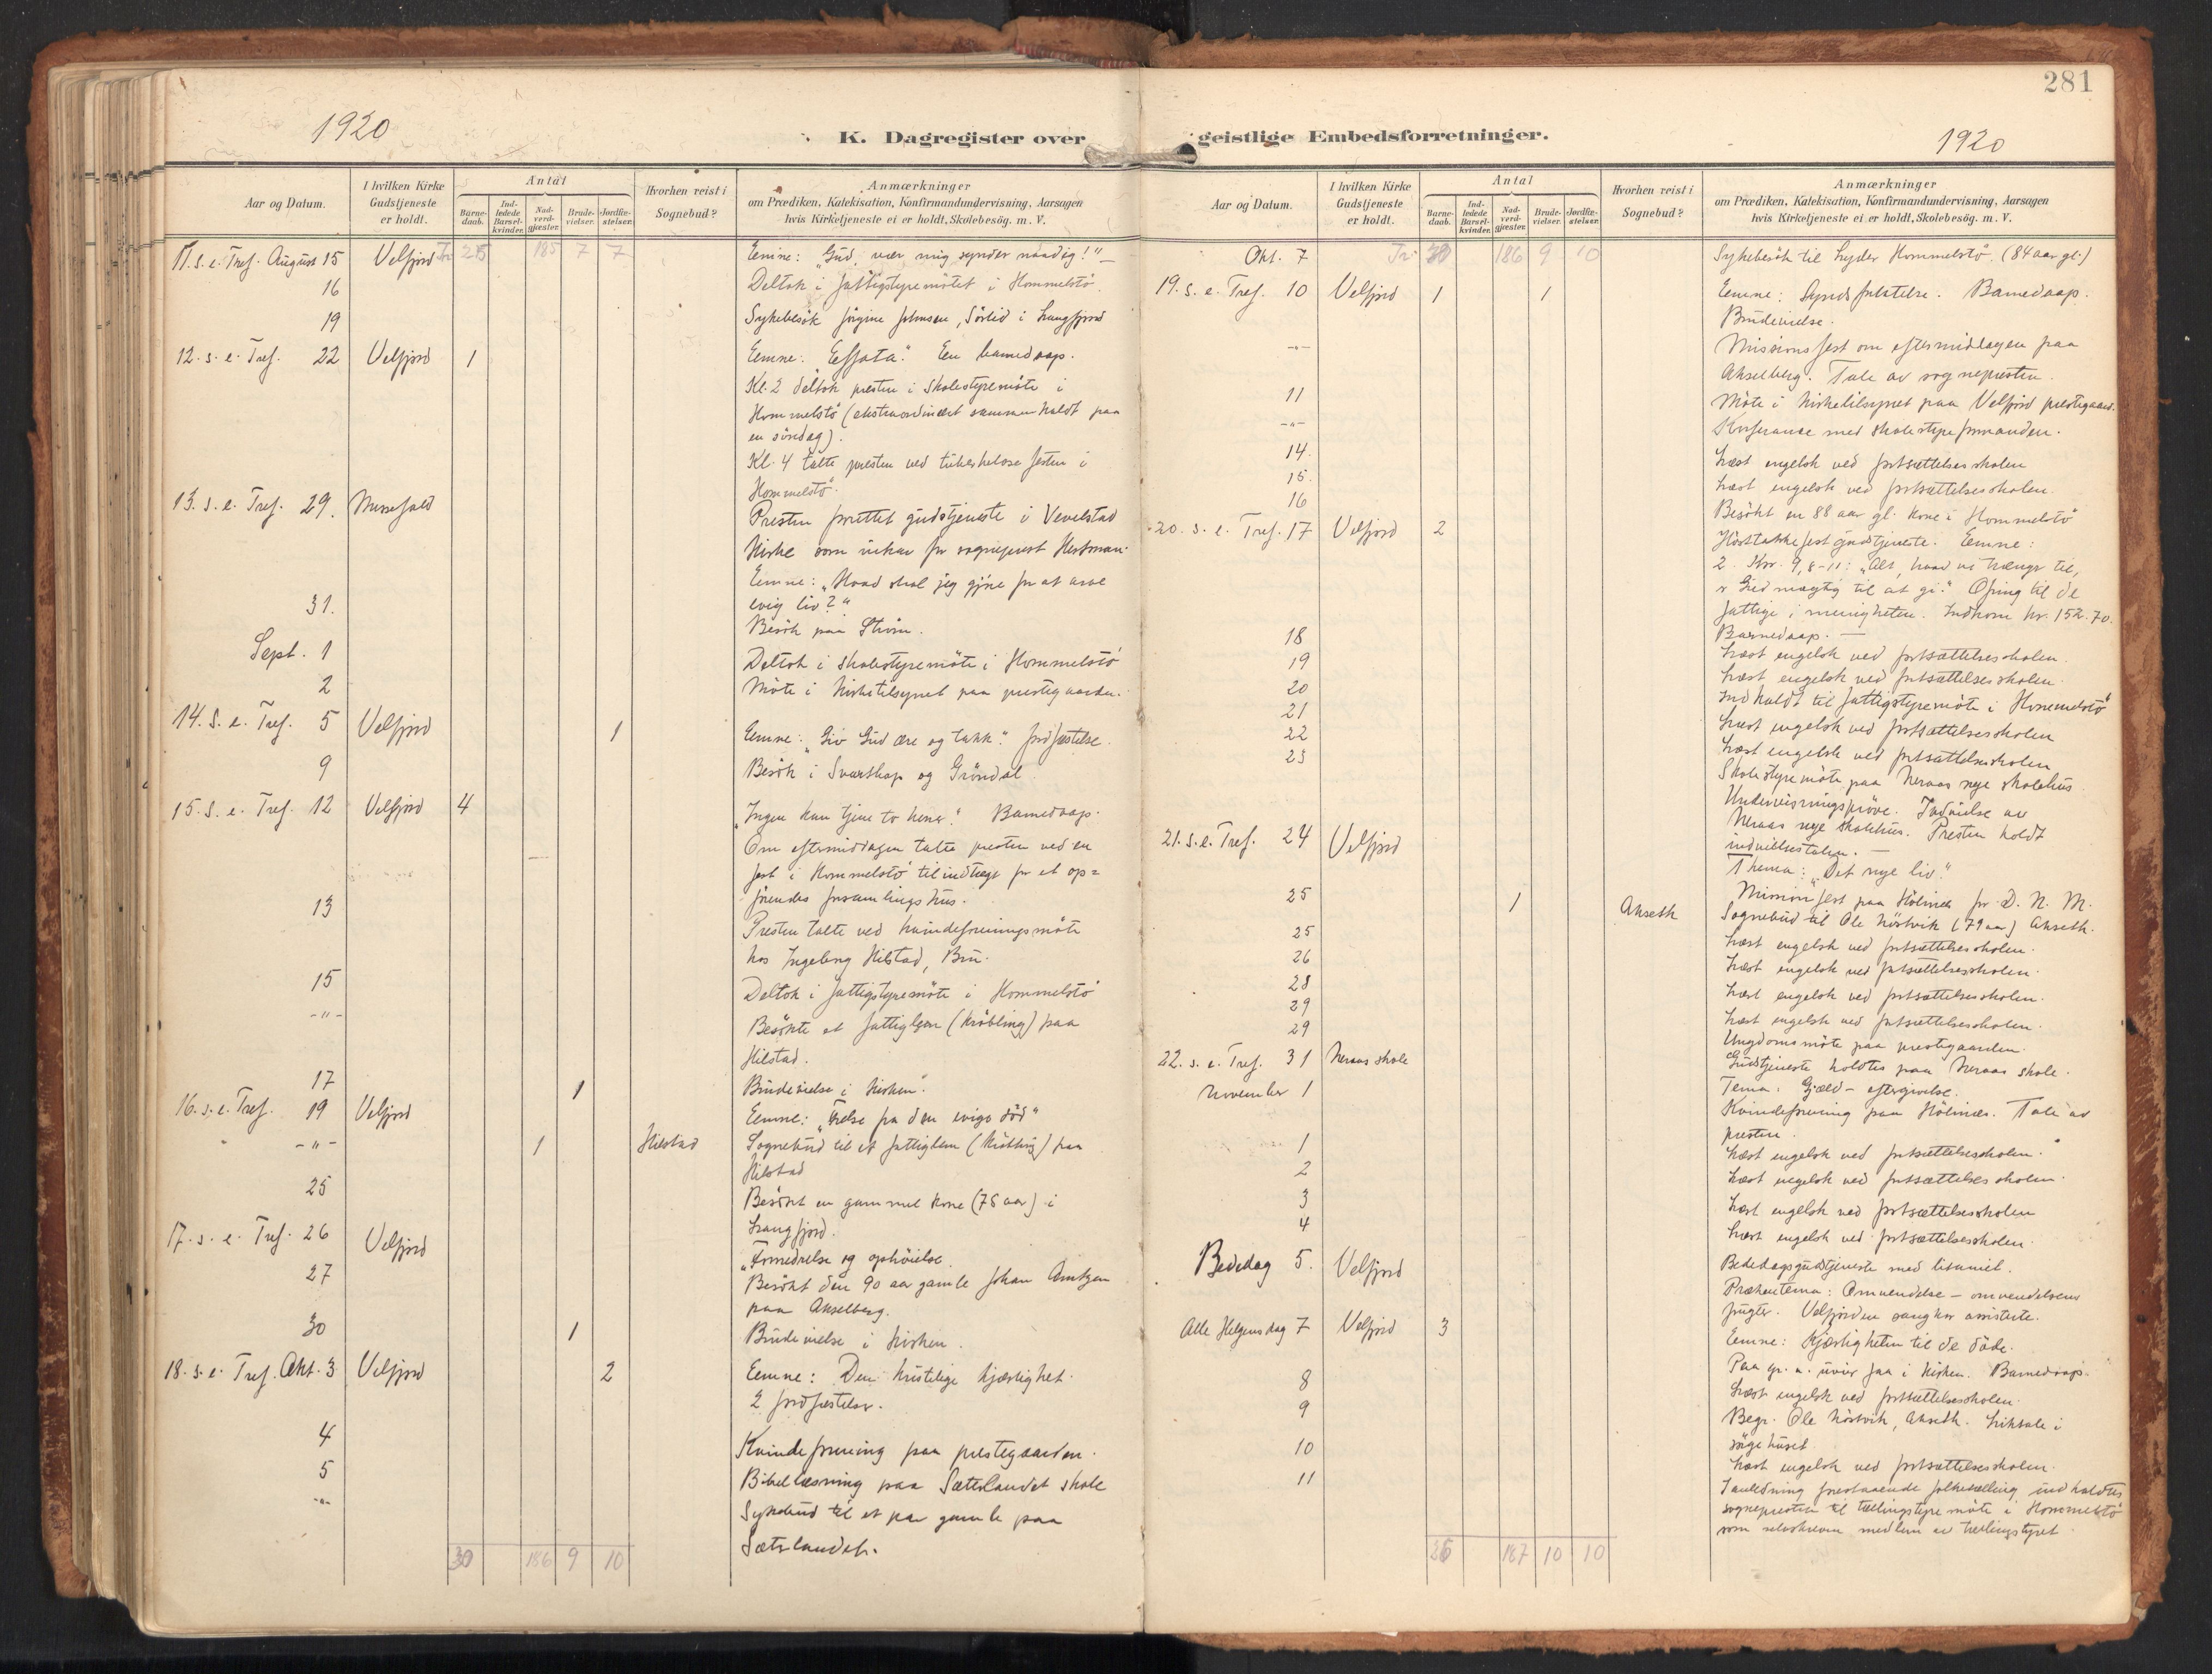 281
1920
K. Dagregister over
Aar og Datum.
I hvilken Kirke Gudstjeneste er holdt.
Antal
Barne-daab.
Ind-ledede Barsel-kvinder.
Nad-verd-gjæster.
Brude-vielser.
Jordfæ-stelser.
Hvorhen reist i Sognebud?
Anmærkninger
om Prædiken, Katekisation, Konfirmandundervisning, Aarsagen
hvis Kirketjeneste ei er holdt, Skolebesøg. m. V.
11. s. e. Tref. August 15 Velfjord Tr. 25 185 7 7 Emne: "Gud, vær mig synder naadig!"
16 Deltok i fattigstyremötet i Hommelstö.
19 Sykebesök Jörgine Johnsen, Sörlid i Langfjord
12. s. e. Tref. 22 Velfjord 1 Emne: "Effata". En barnedaap.
Kl. 2 deltok presten i skolestyremöte i
Hommelstö (ekstraordinært sammenkaldt paa
en söndag).
Kl. 4 talte presten ved tuberkulose festen i
Hommelstö.
13. s. e. Tref. 29.
Presten forrettet gudstjeneste i Vevelstad
Kirke som vikar for sogneprest
Emne: "Hvad skal jeg gjöre for at arve
evig liv?"
31. Besök paa Ström.
Sept. 1 Deltok i skolestyremöte i Hommelstö
2 Möte i Kirketilsynet paa prestegaarden.
14. S. e. Tref. 5 Velfjord 1 Emne: "Giv Gud ære og takk". Jordfæstelse.
9 Besök i Svartkap og Gröndal
15. S. e. Tref. 12 Velfjord 4 "Ingen kan tjene to herrer." Barnedaap.
Om eftermiddagen talte presten ved en
fest i Hommelstö til indtægt for et op=
förendes forsamlingshus.
13 Presten talte ved kvindeforeningsmöte
hos Ingeborg Hilstad, Bru.
15 Deltok i fattigstyremöte i Hommelstö
-"- Besökte et fattiglem (kröbling) paa
Hilstad.
17 1 Brudevielse i kirken.
16. s. e. Tref. 19 Velfjord Emne: "Frelse fra den evige död"
-"- 1 Hilstad Sognebud til et fattiglem (kröbling) paa
Hilstad
25 Besökt en gammel kone (75 aar) i
Langfjord.
17. s. e. Tref. 26 Velfjord "Fornedrelse og ophöielse
27 Besökt den 90 aar gamle Johan Arntzen
paa Akselberg.
30 1 Brudevielse i kirken.
18. s. e. Tref. Okt. 3 Velfjord 2 Emne: Den kristelige kjærlighet.
2 jordfæstelser.
4 Kvindeforening paa prestegaarden.
5 Bibellæsning paa Sæterlandet skole
-"- Sykebud til et par gamle paa
Sæterlandet.
30 186 9 10
geistlige Embedsforretninger.
1920
Aar og Datum.
I hvilken Kirke Gudstjeneste er holdt.
Antal
Barne-daab.
Ind-ledede Barsel-kvinder.
Nad-verd-gjæster.
Brude-vielser.
Jordfæ-stelser.
Hvorhen reist i Sognebud?
Anmærkninger
om Prædiken, Katekisation, Konfirmandundervisning, Aarsagen
hvis Kirketjeneste ei er holdt, Skolebesøg. m. V.
Okt. 7 Tr. 30 186 9 10 Sykebesök til Lyder Hommelstö. (84 aar gl.)
19. s. e. Tref. 10 Velfjord 1 1 Emne: Syndsforlatelse. Barnedaap.
Brudevielse.
-"- Missionsfest om eftermiddagen paa
Akselberg. Tale av sognepresten.
11 Möte i kirketilsynet paa Velfjord prestegaard.
-"- Konferanse med skolestyreformanden.
14. Læst engelsk ved fortsættelsesskolen
15. Læst engelsk ved fortsættelsesskolen.
16 Besökt en 88 aar gl. kone i Hommelstö
20. s. e. Tref. 17 Velfjord 2 Hösttakkefest gudstjeneste. Emne:
2. Kor. 9,8-11: "Alt, hvad vi trænger til,
er Gud mægtig til at gi." Ofring til de
fattige i menigheten. Indkom kr. 152.70.
Barnedaap. —
18 Læst engelsk ved fortsættelsesskolen.
19 Læst engelsk ved fortsættelsesskolen.
20 Indkaldt til fattigstyremöte i Hommelstö
21 Læst engelsk ved fortsættelsesskolen
22 Læst engelsk ved fortsættelsesskolen
23 Skolestyremöte paa Neraas nye skolehus
Undervisningspröve. Indvielse av
Neraas nye skolehus. Presten holdt
indvielsestalen. —
21. s. e. Tref. 24 Velfjord Thema: "Det nye liv."
Missionsfest paa Hölines for D. N. M.
25 1 Akseth Sognebud til Ole Nöstvik (79 aar) Akseth.
25 Læst engelsk ved fortsættelsesskolen.
26 Læst engelsk ved fortsættelsesskolen.
28 Læst engelsk ved fortsættelsesskolen.
29 Læst engelsk ved fortsættelsesskolen.
29 Ungdomsmöte paa prestegaarden.
22. s. e. Tref. 31 Neraas skole Gudstjeneste holdtes paa Neraas skole.
Tema: Gjæld-eftergivelse.
November 1 Kvindeforening paa Hölines. Tale av
presten.
1 Læst engelsk ved fortsættelsesskolen.
2 Læst engelsk ved fortsættelsesskolen.
3 Læst engelsk ved fortsættelsesskolen
4 Læst engelsk ved fortsættelsesskolen.
Bededag 5. Velfjord Bededagsgudstjeneste med litaniet.
Prækentema: Omvendelse — omvendelsens
frugter. Velfjorden sangkor assisterte.
Alle Helgens dag 7 Velfjord 3 Emne: Kjærligheten til de döde.
Paa gr. a. uveir faa i kirken. Barnedaap.
8 Læst engelsk ved fortsættelsesskolen.
9 Begr. Ole Nöstvik, Akseth. Liktale i
sörgehuset
10 Læst engelsk ved fortsættelsesskolen.
11 I anledning forestaaende folketælling indkaldtes
sognepresten til tællingstyremöte i Hommelstö
som selvskreven medlem av tællingstyret
187 10 10